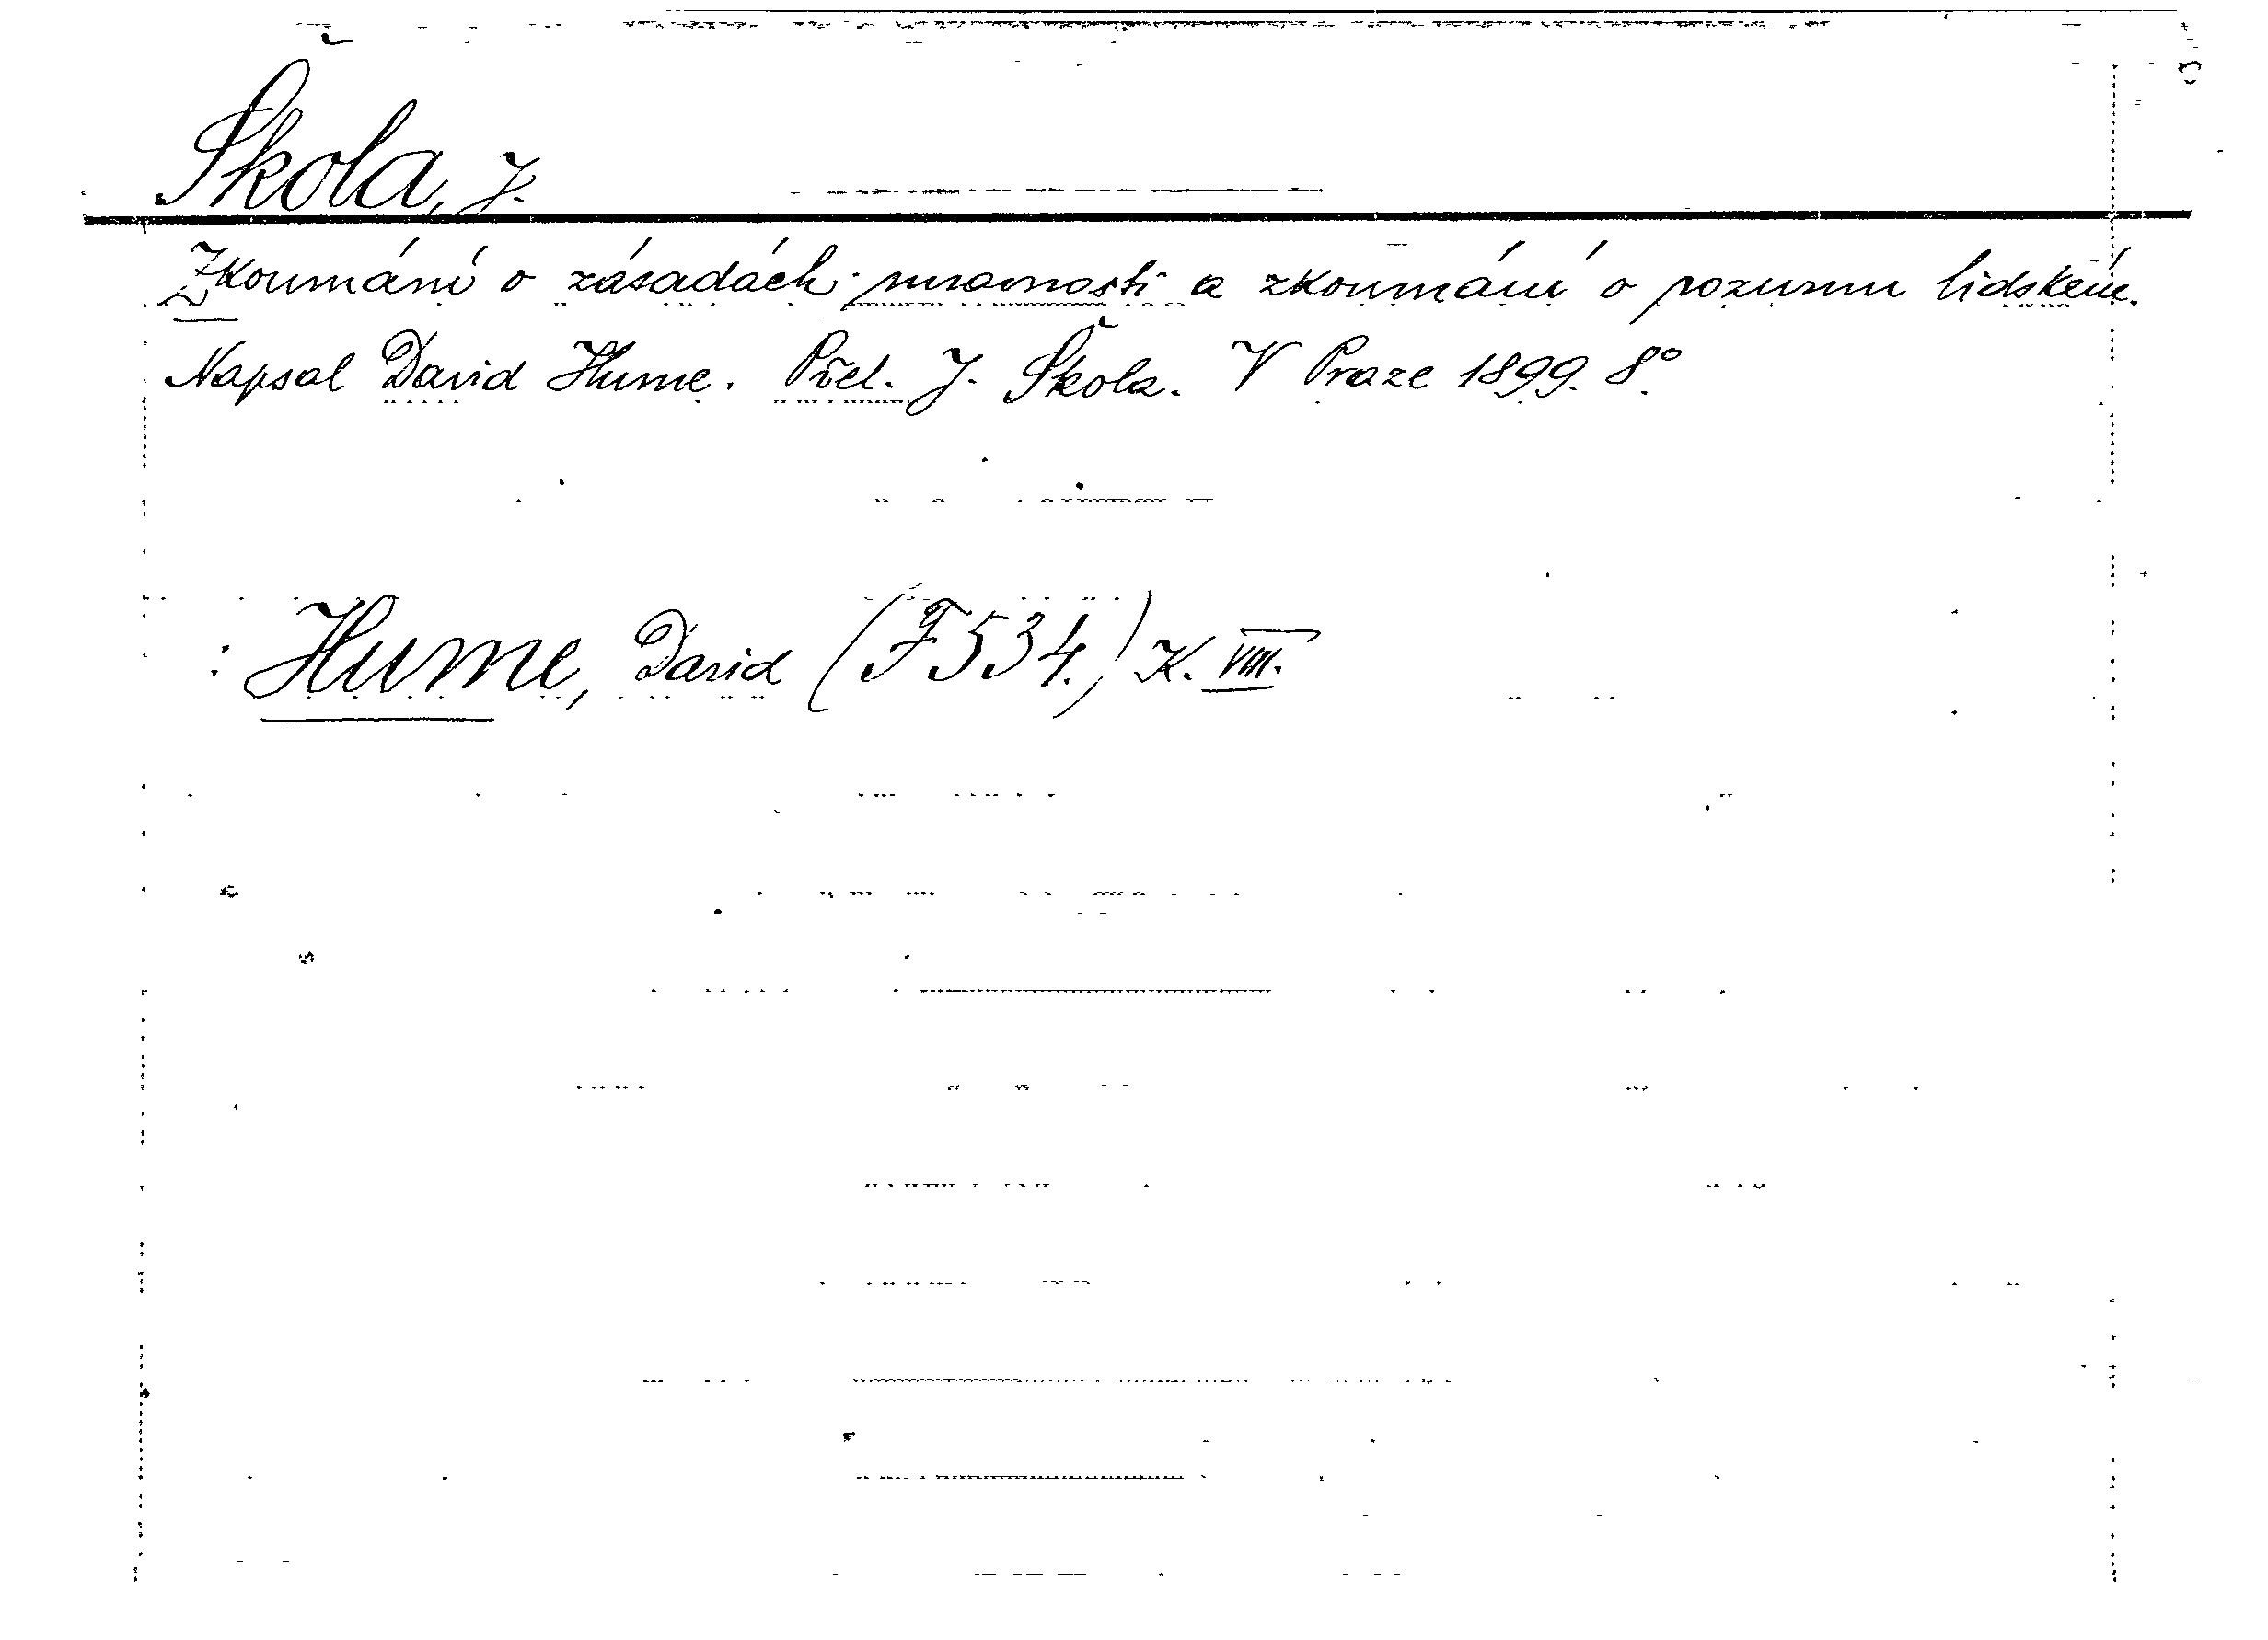 Škola, J.
Zkoumání o zásadách mravnosti a zkoumání o rozumu lidském.
Napsal David Hume. Přel. J. Škola. V Praze 1899. 8°
: Hume, David (F 534.) K. VIII.